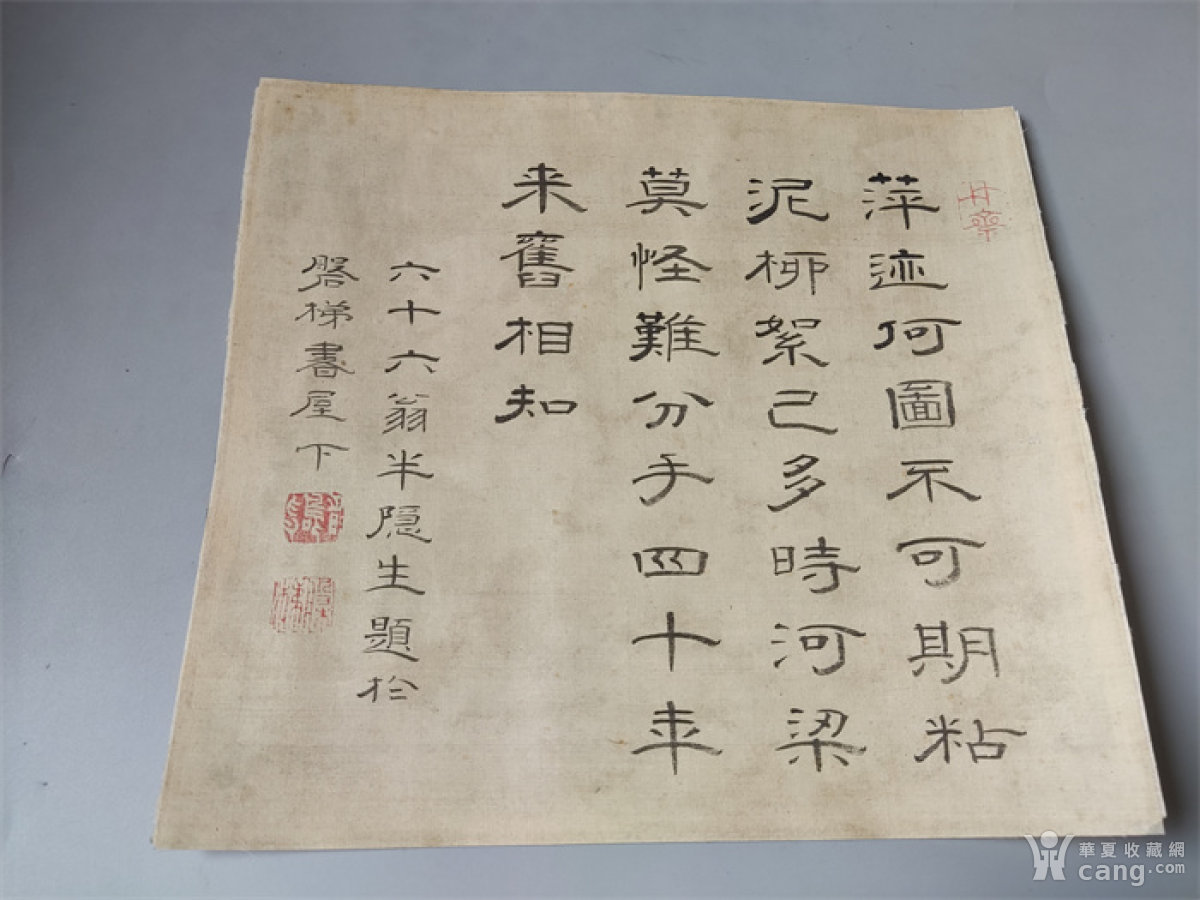 萍迹何圖不可期粘
泥柳絮已多時河梁
莫怪難分手四十年
来舊相知
六十六翁半隠生題於
磐梯書屋下
華夏收藏網
cang.com